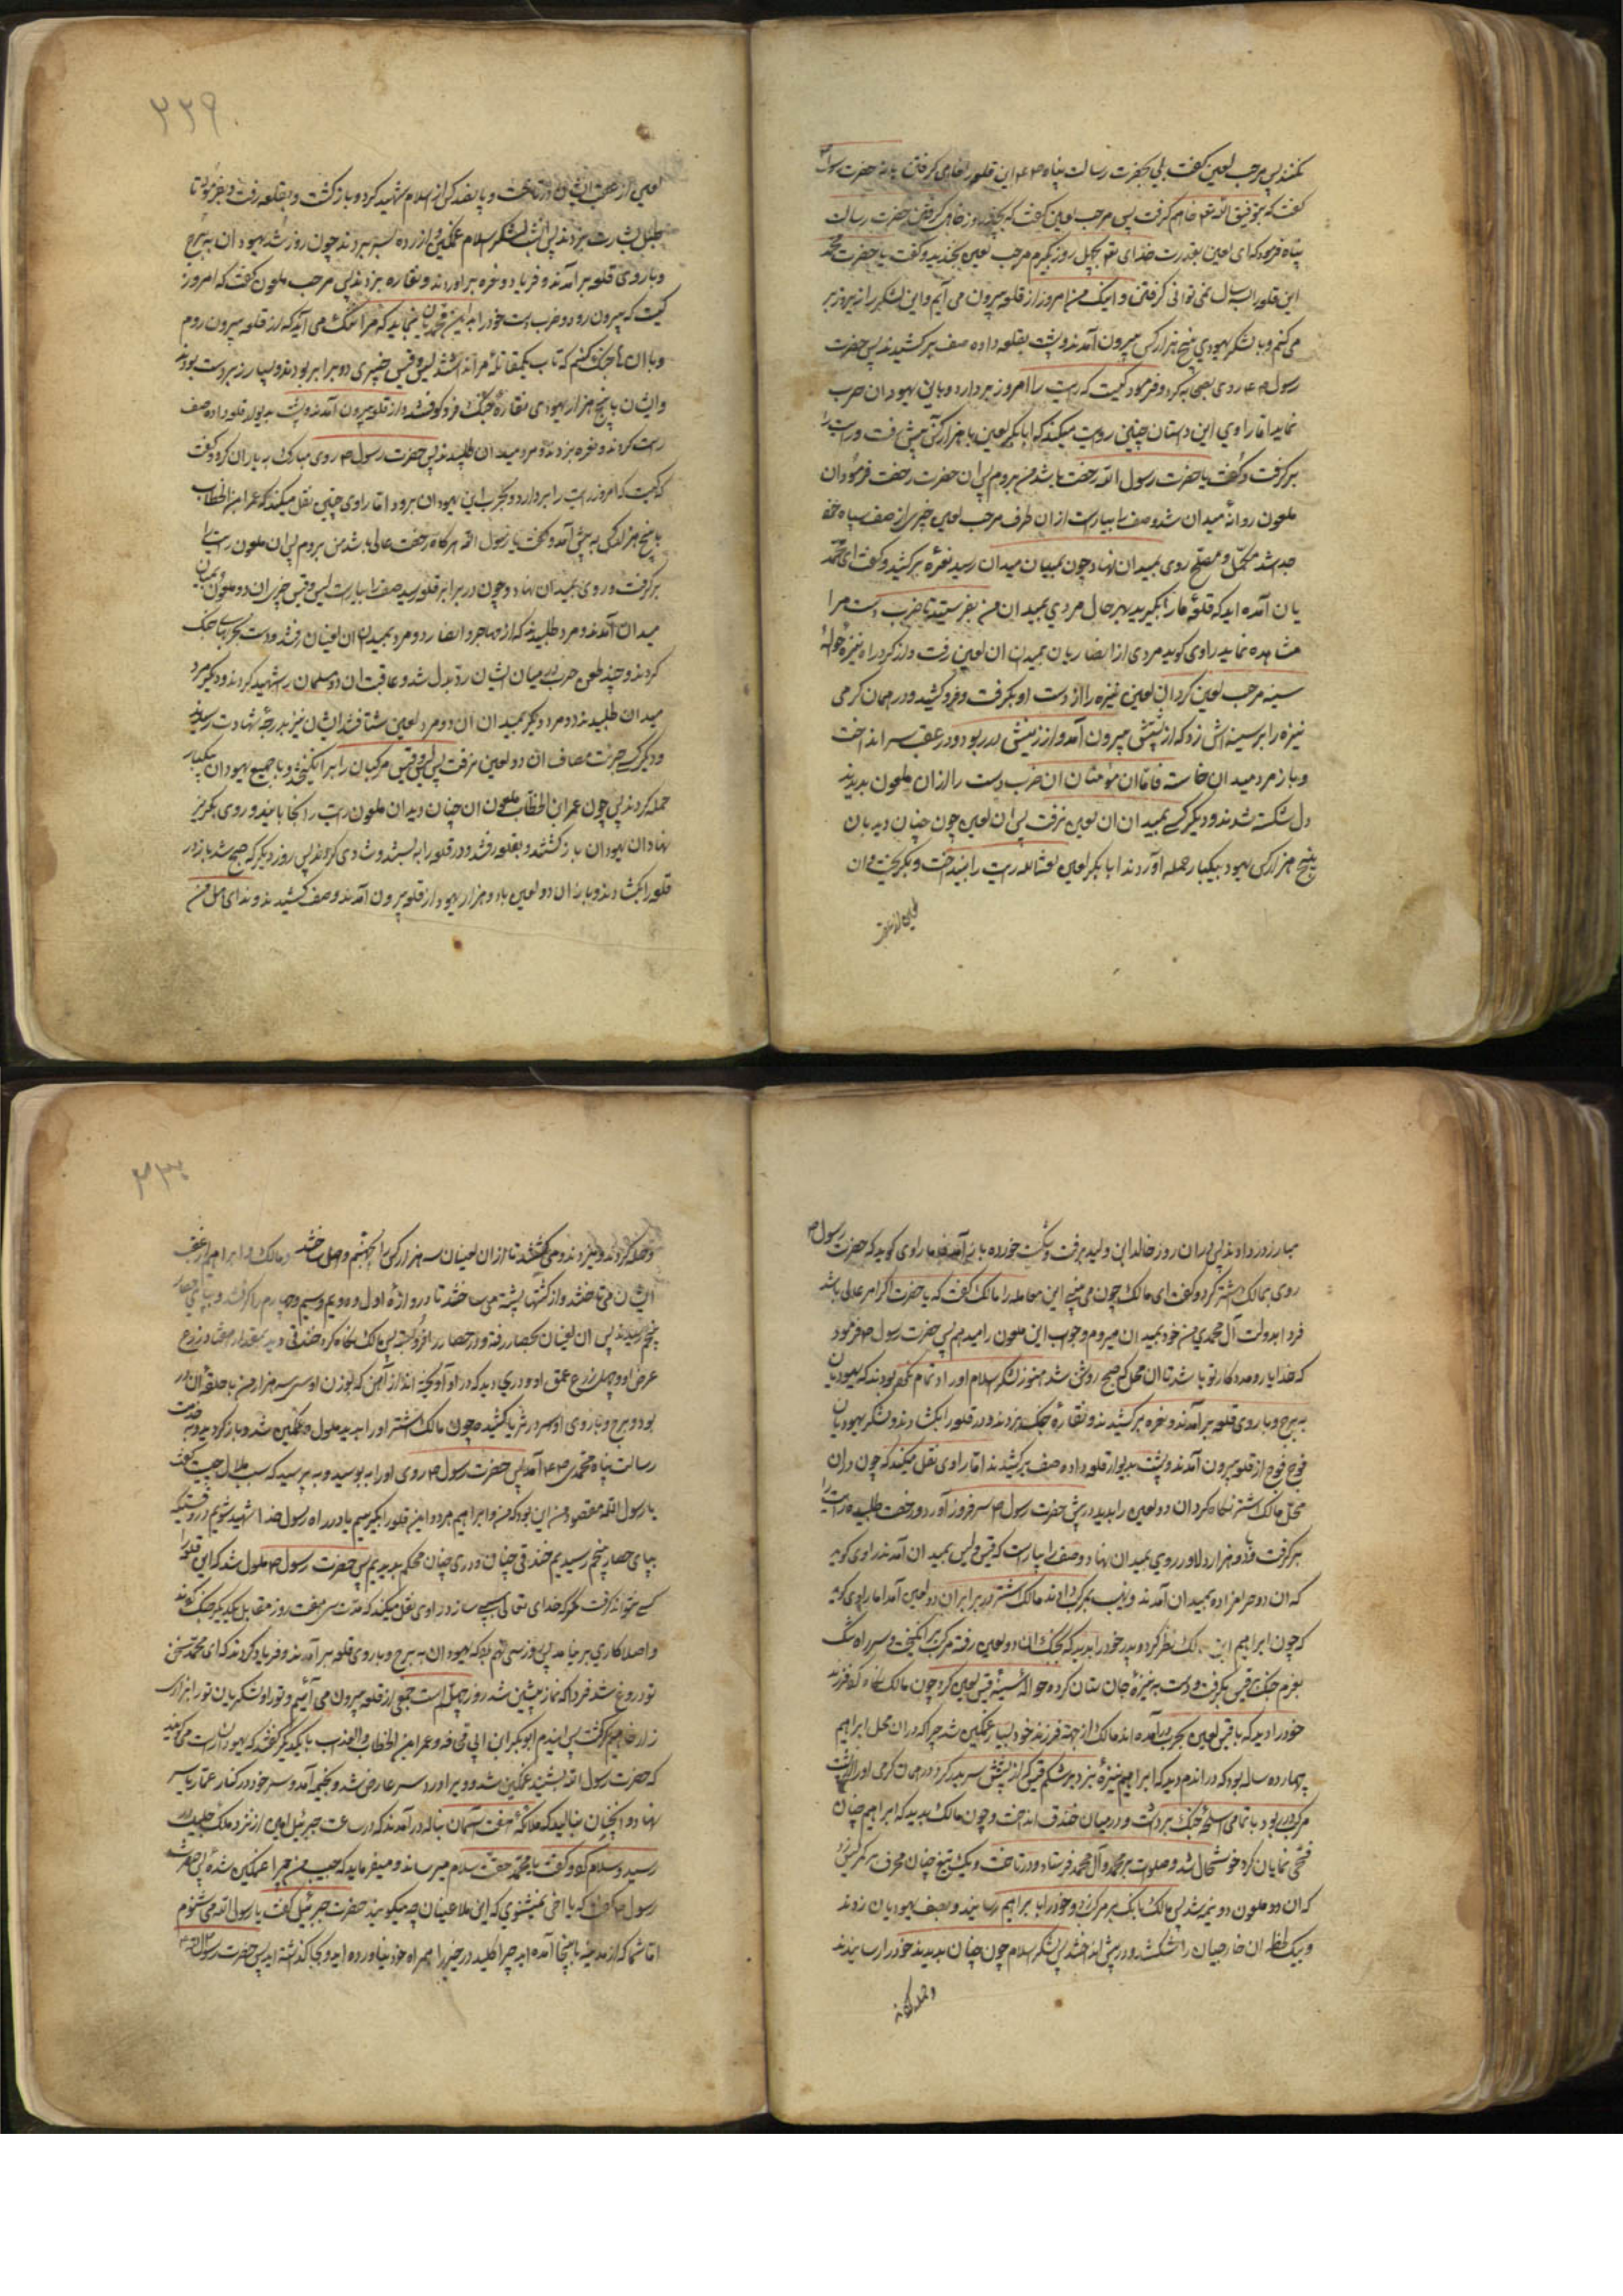 نکنند پس مرجب لعین گفت بلی یحضرت رسالت پناه این قلعه را خواهی گرفتن یا نه حضرت رسول
گفت که بتوفیق الله خواهم گرفت پس مرجب لعین گفت که بچند روز خواهی گرفتن حضرت رسالت
پناه فرمود که ای لعین بقدرت خدای بچهل روز بگیرم مرجب لعین بخندید و گفت یا حضرت محمد
این قلعه را بسال نمی توانی گرفتن و اینک من امروز از قلعه بیرون می آیم و این لشکر را زیر و زبر
می کنم و با لشکر یهودی پنج هزار کس بیرون آمدند و پشت بقلعه داده صف بر کشیدند پس حضرت
رسول روی بصحابه کرد و فرمود کیست که رایت را امروز بردارد و با این یهودان حرب
نماید اما راوی این داستان چنین روایت میکند که ابابکر لعین با هزار کس پیش رفت و رایت را
برگرفت و گفت یا حضرت رسول الله رخصت باشد من بروم پس ان حضرت رخصت فرمود ان
ملعون روانه میدان شد و صف را بیاراست از ان طرف مرجب لعین خیبری از صف سپاه خود
جدا شد مکمل و مصلح روی بمیدان نهاد چون بمیان میدان رسید نعره بر کشید و گفت ای محمد
یان آمده اید که قلعه ما را بگیرید بهر حال مردی بمیدان من بفرستید تا ضرب دست مرا
مشاهده نماید راوی گوید مردی از انصاریان بمیدان ان لعین رفت و از گرد راه نیزه حواله
سینه مرجب لعین کرد ان لعین نیزه را از دست او بگرفت و فرو کشید و در همان گرمی
نیزه را بر سینه اش زد که از پشتش بیرون آمد و از زینش در ربود و در عقب سر انداخت
و باز مرد میدان خواست فاما ان مؤمنان ان ضرب دست را از ان ملعون بدیدند
دل شکسته شدند و دیگر کسی بمیدان ان لعین نرفت پس ان لعین چون چنان دید بان
پنج هزار کس یهود بیکبار حمله آوردند ابابکر لعین رایت را بینداخت و بگریخت و ان
لعین از عقب
۲۲۹
لعین از عقب ایشان در تاخت و پانصد کس از اسلام شهید کرد و باز گشت و بقلعه رفت و بفرمود تا
طبل بشارت بزدند پس ان شب لشکر اسلام غمگین و ازرده بسر بردند چون روز شد یهودان ببرج
و باروی قلعه بر آمدند و فریاد و نعره بر اوردند و نقاره بزدند پس مرجب ملعون گفت که امروز
کیست که بیرون رود و ضرب دست خود را نماید که مرا ننگ می آید که از قلعه بیرون روم
و با ان جنگ کنم که تاب یکمقابله مرا ندارند لیس و قیس خیبری دو برابر بودند و بسیار زبردست بودند
و ایشان با پنج هزار یهودی نقاره جنگ فرو کوفتند و از قلعه بیرون آمدند و پشت بدیوار قلعه داده صف
راست کردند و نعره بزدند و مرد میدان طلبیدند پس حضرت رسول روی مبارک به یاران کرد و گفت
که کیست که امروز رایت را بردارد و بحرب این یهودان برود اما راوی چنین نقل میکند که عمر ابن الخطاب
با پنج هزار کس به پیش آمد و گفت یا رسول الله هرگاه رخصت عالی باشد من بروم پس ان ملعون رایت را
برگرفت و روی بمیدان نهاد و چون در برابر قلعه رسید صف را بیاراست لیس و قیس خیبری ان دو ملعون بمیان
میدان آمدند و مرد طلبیدند که از مهاجر و انصار دو مرد بمیدان ان لعینان رفتند و دست بحربهای جنگ
کردند و چند طعن حرب در میان ایشان رد بدل شد و عاقبت ان دو مسلمان را شهید کردند و دیگر مرد
میدان طلبیدند دو مرد دیگر بمیدان ان دو مرد لعین شتافتند ایشان نیز بدرجه شهادت رسیدند
و دیگر کسی جرئت مصاف ان دو لعین نرفت پس لیس و قیس مرکبان را بر انگیختند و با جمیع یهودان بیکبار
حمله کردند پس چون عمر ابن الخطاب ملعون ان چنان دید ان ملعون رایت را انجا بانید و روی بگریز
نهاد ان یهودان باز گشتند و بقلعه رفتند و در قلعه را به بستند و شادی کردند پس روز دیگر که صبح شد باز در
قلعه را بگشادند و باز ان دو لعین با دو هزار یهود از قلعه بیرون آمدند و صف کشیدند و ندای هل من
مبارز در دادند پس در ان روز خالد ابن ولید برفت و شکست خورده باز آمد اما راوی گوید که حضرت رسول
روی بمالک اشتر کرد و گفت ای مالک چون می بینی این معامله را مالک گفت که یا حضرت اگر امر عالی باشد
فردا بدولت آل محمدی من خود بمیدان میروم و جواب این ملعون را میدهم پس حضرت رسول فرمود
که خدا یار و مددکار تو باشد تا ان محل که صبح روشن شد هنوز لشکر اسلام اوراد تمام نکرده بودند که یهودیان
به برج و باروی قلعه بر آمدند و نعره بر کشیدند و نقاره جنگ بزدند و در قلعه را بگشادند و لشکر یهودیان
فوج فوج از قلعه بیرون آمدند و پشت بدیوار قلعه داده صف بر کشیدند اما راوی نقل میکند که چون در ان
محل مالک اشتر نگاه کرد ان دو لعین را بدید در پیش حضرت رسول سر فرود آورد و رخصت طلبید رایت را
برگرفت و با دو هزار دلاور روی بمیدان نهاد و صف را بیاراست که قیس و لیس بمیدان آمدند راوی گوید
که ان دو حرامزاده بمیدان آمدند و نهیب بمرکب دادند مالک اشتر در برابر ان دو لعین آمد اما راوی گوید
که چون ابراهیم ابن مالک نظر کرد و پدر خود را بدید که بجنگ ان دو لعین رفته مرکب بر انگیخت و سر راه تنگ
بعزم جنگ قیس بگرفت و دست به نیزه جان ستان کرده حواله سینه قیس لعین کرد چون مالک نگاه کرد فرزند
خود را دید که با قیس لعین بحرب در آمده اند مالک از جهة فرزند خود بسیار غمگین شد چرا که در ان محل ابراهیم
چهارده ساله بود که در اندم دید که ابراهیم نیزه بزد بر شکم قیس که از پشتش سر بدر کرد و در همان گرمی او را از پشت
مرکب در ربود با تمامی اسلحه جنگ برداشت و در میان خندق انداخت و چون مالک بدید که ابراهیم چنان
فتحی نمایان کرد خوشحال شد و صلوات بر محمد و آل محمد فرستاد و در تاخت و یک تیغ چنان محرف بر کمر لیس زد
که ان دو ملعون دو نیم شد پس مالک بانگ بر مرکب زد و خود را با ابراهیم رسانیدند و بصف یهودیان زدند
و بیک لحظه ان خارجیان را شکستند و در پیش انداختند پس لشکر اسلام چون چنان بدیدند خود را رسانیدند
و حمله کردند
۲۳۰
و حمله کردند و میزدند و می کشتند تا از ان لعینان سه هزار کس را بجهنم واصل ساختند و مالک و ابراهیم از عقب
ایشان می تاختند و از کشتها پشته می ساختند تا دروازه اول و دویم و سیم و چهارم را گرفتند و بپای حصار
پنجم رسیدند پس ان لعینان بحصار رفته و در حصار را فرو بسته پس مالک نگاه کرد خندقی دید بمقدار هفتاد زرع
عرض او و چهل زرع عمق او و دری دید که در او آویخته اند از آهن که بوزن او سی سه هزار من با حلقه ان در
بود و برج و باروی او سر در ثریا کشیده چون مالک اشتر او را بدید ملول و غمگین شد و باز گردید و به خدمت
رسالت پناه محمدی آمد پس حضرت رسول روی او را به بوسید و به پرسید که سبب ملال چیست گفت
یا رسول الله مقصود من این بود که من و ابراهیم هر دو این قلعه را بگیریم یا در راه رسول خدا شهید شویم در وقتیکه
بپای حصار پنجم رسیدیم خندقی چنان و دری چنان محکم بدیدیم پس حضرت رسول ملول شد که این قلعه را
کسی نتواند گرفت مگر که خدای تعالی سببی سازد راوی نقل میکند که مدت سی هفت روز مقابل یکدیگر جنگ کردند
و اصلا کاری بر نیامد پس روز سی نهم بود که یهودان به برج و باروی قلعه بر آمدند و فریاد کردند که ای محمد سخن
تو دروغ شد فردا که نماز پیشین شد روز چهلم است جمعی از قلعه بیرون می آئیم و تو را و لشکریان تو را بزاری
زار خواهیم کشت پس ایندم ابوبکر ابن ابی قحافه و عمر ابن الخطاب و العذاب با یکدیگر گفتند که یهودان راست می گویند
که حضرت رسول الله بشنید غمگین شد و ویرا درد سر عارض شد و بخیمه آمد و سر خود در کنار عمار یاسر
نهاد و انچنان بنالید که ملائکه هفت آسمان بناله در آمدند که در ساعت جبرئیل امین از نزد ملک جلیل در
رسید و سلام کرد و گفت یا محمد حقت سلام میرساند و میفرماید که حبیب من چرا غمگین شده پس حضرت
رسول گفت که یا اخی نمیشنوی که این ملاعینان چه میگویند حضرت جبرئیل گفت یا رسول الله می شنوم
اما شما که از مدینه باینجا آمده اید چرا کلید در خیبر را همراه خود نیاورده اید و بجا گذاشته اید پس حضرت رسول